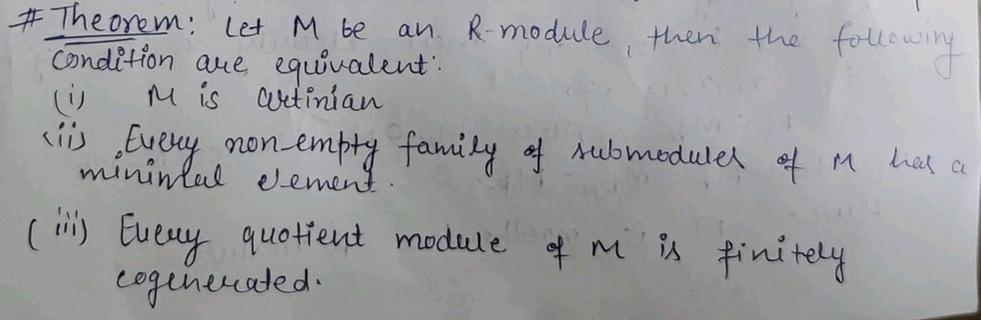 # Theorem: Let M be an R-module, then the following
condition are equivalent:
(i) M is artinian
(ii) Every non-empty family of submodules of M has a
minimal element.
(iii) Every quotient module of M is finitely
cogenerated.